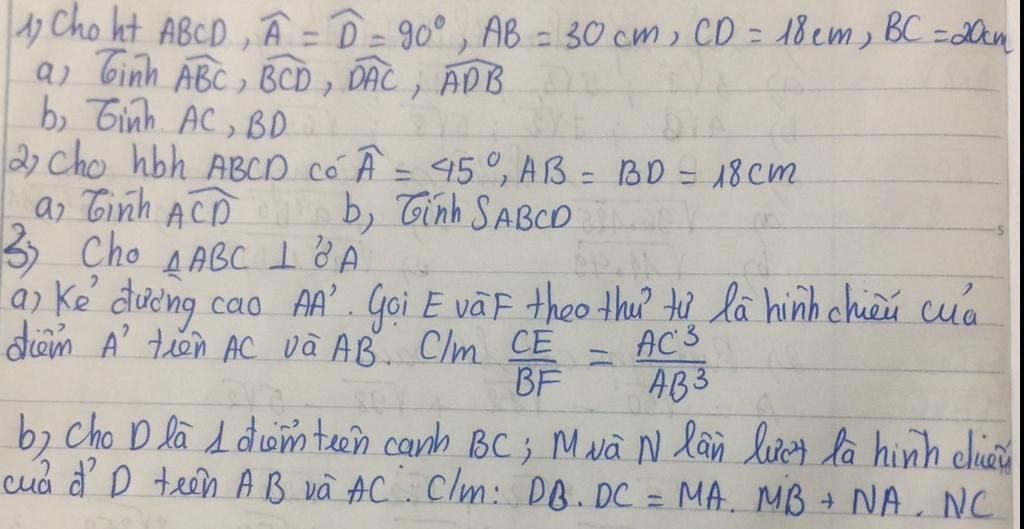 1, Cho ht ABCD, Â = D̂ = 90°, AB = 30 cm, CD = 18 cm, BC = 20cm
a, Tính ABC, BCD, DAC, ADB
b, Tính AC, BD
2, Cho hbh ABCD có Â = 45°, AB = BD = 18 cm
a, Tính ACD b, Tính SABCD
3, Cho △ABC ⊥ ở A
a, Kẻ đường cao AA'. Gọi E và F theo thứ tự là hình chiếu của
điểm A' trên AC và AB. C/m CE/BF = AC³/AB³
b, Cho D là 1 điểm trên cạnh BC; M và N lần lượt là hình chiếu
của đ' D trên AB và AC. C/m: DB. DC = MA. MB + NA. NC